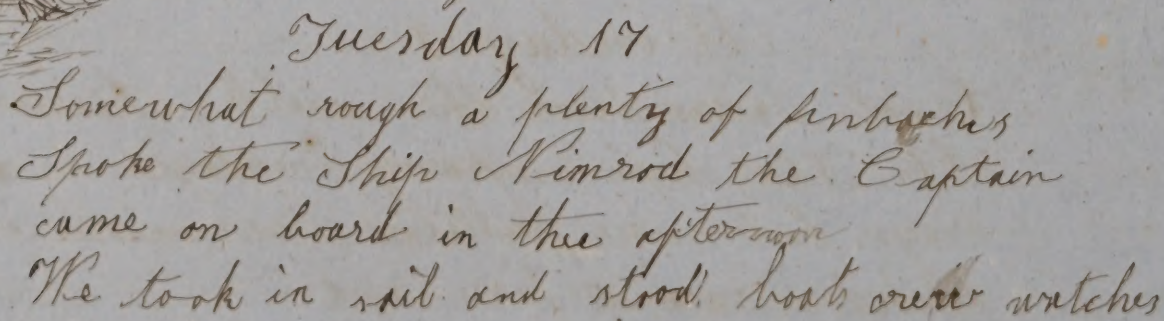 Tuesday 17
Somewhat rough a plenty of finbacks
Spoke the Ship Nimrod the Captain
came on board in thee afternoon
We took in sail and stood boats crew watches